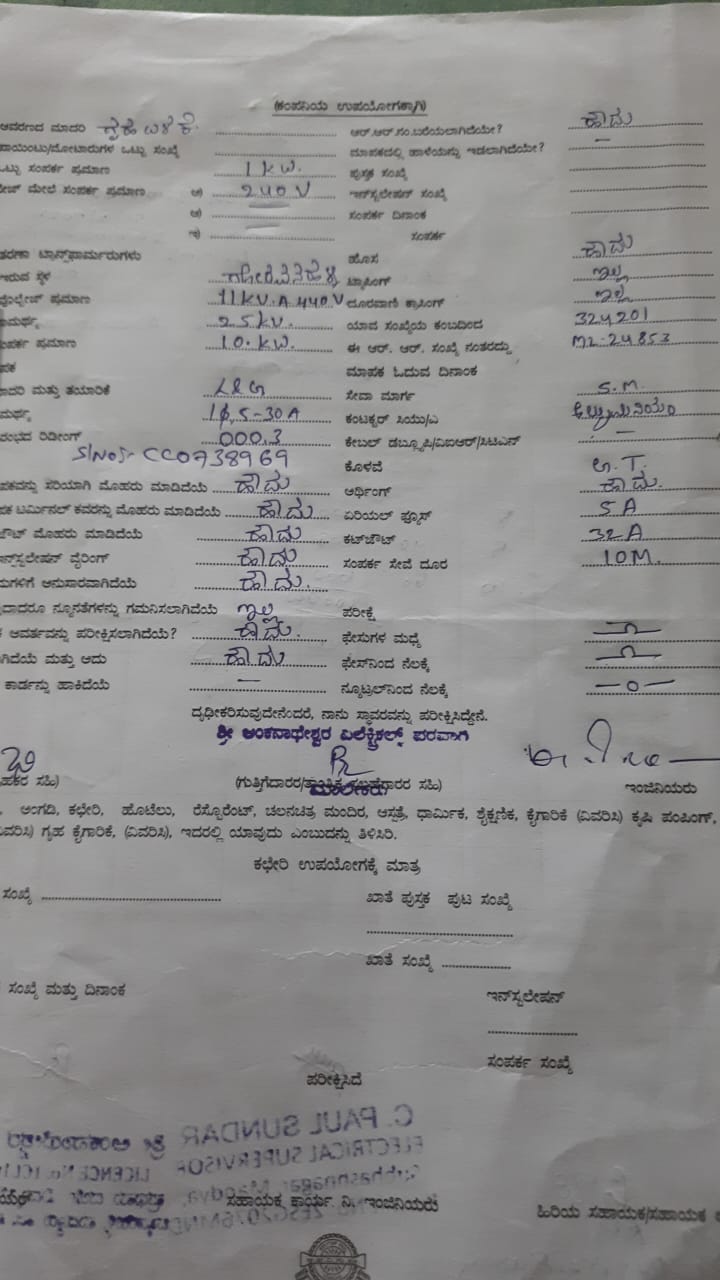 (ಕಂಪನಿಯ ಉಪಯೋಗಕ್ಕಾಗಿ)
ಆವರಣದ ಮಾದರಿ ಗೃಹ ಬಳಕೆ. ಆರ್.ಆರ್.ನಂ.ಬರೆಯಲಾಗಿದೆಯೇ? ಹೌದು
ಪಾಯಿಂಟು/ಮೋಟಾರುಗಳ ಒಟ್ಟು ಸಂಖ್ಯೆ ಮಾಪಕದಲ್ಲಿ ಹಾಳೆಯನ್ನು ಇಡಲಾಗಿದೆಯೇ? —
ಒಟ್ಟು ಸಂಪರ್ಕ ಪ್ರಮಾಣ 1 KW. ಪುಸ್ತಕ ಸಂಖ್ಯೆ
ಮೇಲೆ ಸಂಪರ್ಕ ಪ್ರಮಾಣ ಅ) 240 V ಇನ್‌ಸ್ಟಲೇಷನ್ ಸಂಖ್ಯೆ
ಆ) ಸಂಪರ್ಕ ದಿನಾಂಕ
ಇ) ಸಂಪರ್ಕ
ತರಣಾ ಟ್ರಾನ್ಸ್‌ಫಾರ್ಮರುಗಳು ಹೊಸ ಹೌದು
ಇರುವ ಸ್ಥಳ ಟ್ಯಾಪಿಂಗ್ ಇಲ್ಲ
ವೋಲ್ಟೇಜ್ ಪ್ರಮಾಣ 11KV.A 440.V ದೂರವಾಣಿ ಕ್ರಾಸಿಂಗ್ ಇಲ್ಲ
ಸಾಮರ್ಥ್ಯ 25 KV. ಯಾವ ಸಂಖ್ಯೆಯ ಕಂಬದಿಂದ 324201
ಸಂಪರ್ಕ ಪ್ರಮಾಣ 10. KW. ಈ ಆರ್. ಆರ್. ಸಂಖ್ಯೆ ನಂತರದ್ದು ML-24853
ಪಕ ಮಾಪಕ ಓದುವ ದಿನಾಂಕ
ಮಾದರಿ ಮತ್ತು ತಯಾರಿಕೆ L&G ಸೇವಾ ಮಾರ್ಗ S.M
ಮರ್ಥ್ಯ 1ϕ,5-30A ಕಂಟಕ್ಟರ್ ಸಿಯು/ಎ ಅಲ್ಯುಮಿನಿಯಂ
ರಂಭದ ರಿಡೀಂಗ್ 000.3 ಕೇಬಲ್ ಡಬ್ಲ್ಯೂಪಿ/ವಿಐಆರ್/ಸಿಟಿಎಸ್ —
S/NO:- CC0738969 ಕೊಳವೆ G.T.
ಪಕವನ್ನು ಸರಿಯಾಗಿ ಮೊಹರು ಮಾಡಿದೆಯೆ ಹೌದು ಅರ್ಥಿಂಗ್ ಹೌದು.
ಪಕ ಟರ್ಮಿನಲ್ ಕವರನ್ನು ಮೊಹರು ಮಾಡಿದೆಯೆ ಹೌದು ಏರಿಯಲ್ ಫ್ಯೂಸ್ 5A
ಜೌಟ್ ಮೊಹರು ಮಾಡಿದೆಯೆ ಹೌದು ಕಟ್‌ಔಟ್ 32A
ಇನ್‌ಸ್ಟಲೇಷನ್ ವೈರಿಂಗ್ ಹೌದು ಸಂಪರ್ಕ ಸೇವೆ ದೂರ 10M.
ಮಗಳಿಗೆ ಅನುಸಾರವಾಗಿದೆಯೆ ಹೌದು.
ವುದಾದರೂ ನ್ಯೂನತೆಗಳನ್ನು ಗಮನಿಸಲಾಗಿದೆಯೆ ಇಲ್ಲ ಪರೀಕ್ಷೆ
ಆವರ್ತವನ್ನು ಪರೀಕ್ಷಿಸಲಾಗಿದೆಯೆ? ಹೌದು. ಫೇಸುಗಳ ಮಧ್ಯೆ
ಗಿದೆಯೆ ಮತ್ತು ಅದು ಹೌದು ಫೇಸ್‌ನಿಂದ ನೆಲಕ್ಕೆ
ಕಾರ್ಡನ್ನು ಹಾಕಿದೆಯೆ — ನ್ಯೂಟ್ರಲ್‌ನಿಂದ ನೆಲಕ್ಕೆ —0—
ದೃಢೀಕರಿಸುವುದೇನೆಂದರೆ, ನಾನು ಸ್ಥಾವರವನ್ನು ಪರೀಕ್ಷಿಸಿದ್ದೇನೆ.
ಶ್ರೀ ಅಂಕನಾಥೇಶ್ವರ ಎಲೆಕ್ಟ್ರಿಕಲ್ಸ್ ಪರವಾಗಿ
ಮಾಲೀಕರು
ಹಕರ ಸಹಿ) (ಗುತ್ತಿಗೆದಾರರ ಸಹಿ) ಇಂಜಿನಿಯರು
ಅಂಗಡಿ, ಕಛೇರಿ, ಹೊಟೆಲು, ರೆಸ್ಟೊರೆಂಟ್, ಚಲನಚಿತ್ರ ಮಂದಿರ, ಆಸ್ಪತ್ರೆ, ಧಾರ್ಮಿಕ, ಶೈಕ್ಷಣಿಕ, ಕೈಗಾರಿಕೆ (ವಿವರಿಸಿ) ಕೃಷಿ ಪಂಪಿಂಗ್,
ವಿವರಿಸಿ) ಗೃಹ ಕೈಗಾರಿಕೆ, (ವಿವರಿಸಿ), ಇದರಲ್ಲಿ ಯಾವುದು ಎಂಬುದನ್ನು ತಿಳಿಸಿರಿ.
ಕಛೇರಿ ಉಪಯೋಗಕ್ಕೆ ಮಾತ್ರ
ಸಂಖ್ಯೆ ಖಾತೆ ಪುಸ್ತಕ ಪುಟ ಸಂಖ್ಯೆ
ಖಾತೆ ಸಂಖ್ಯೆ
ಸಂಖ್ಯೆ ಮತ್ತು ದಿನಾಂಕ ಇನ್‌ಸ್ಟಲೇಷನ್
ಸಂಪರ್ಕ ಸಂಖ್ಯೆ
ಪರೀಕ್ಷಿಸಿದೆ
C. PAUL SUNDAR
ELECTRICAL SUPERVISOR
ಸಹಾಯಕ ಕಾರ್ಯ. ನಿ. ಇಂಜಿನಿಯರು ಹಿರಿಯ ಸಹಾಯಕ/ಸಹಾಯಕ